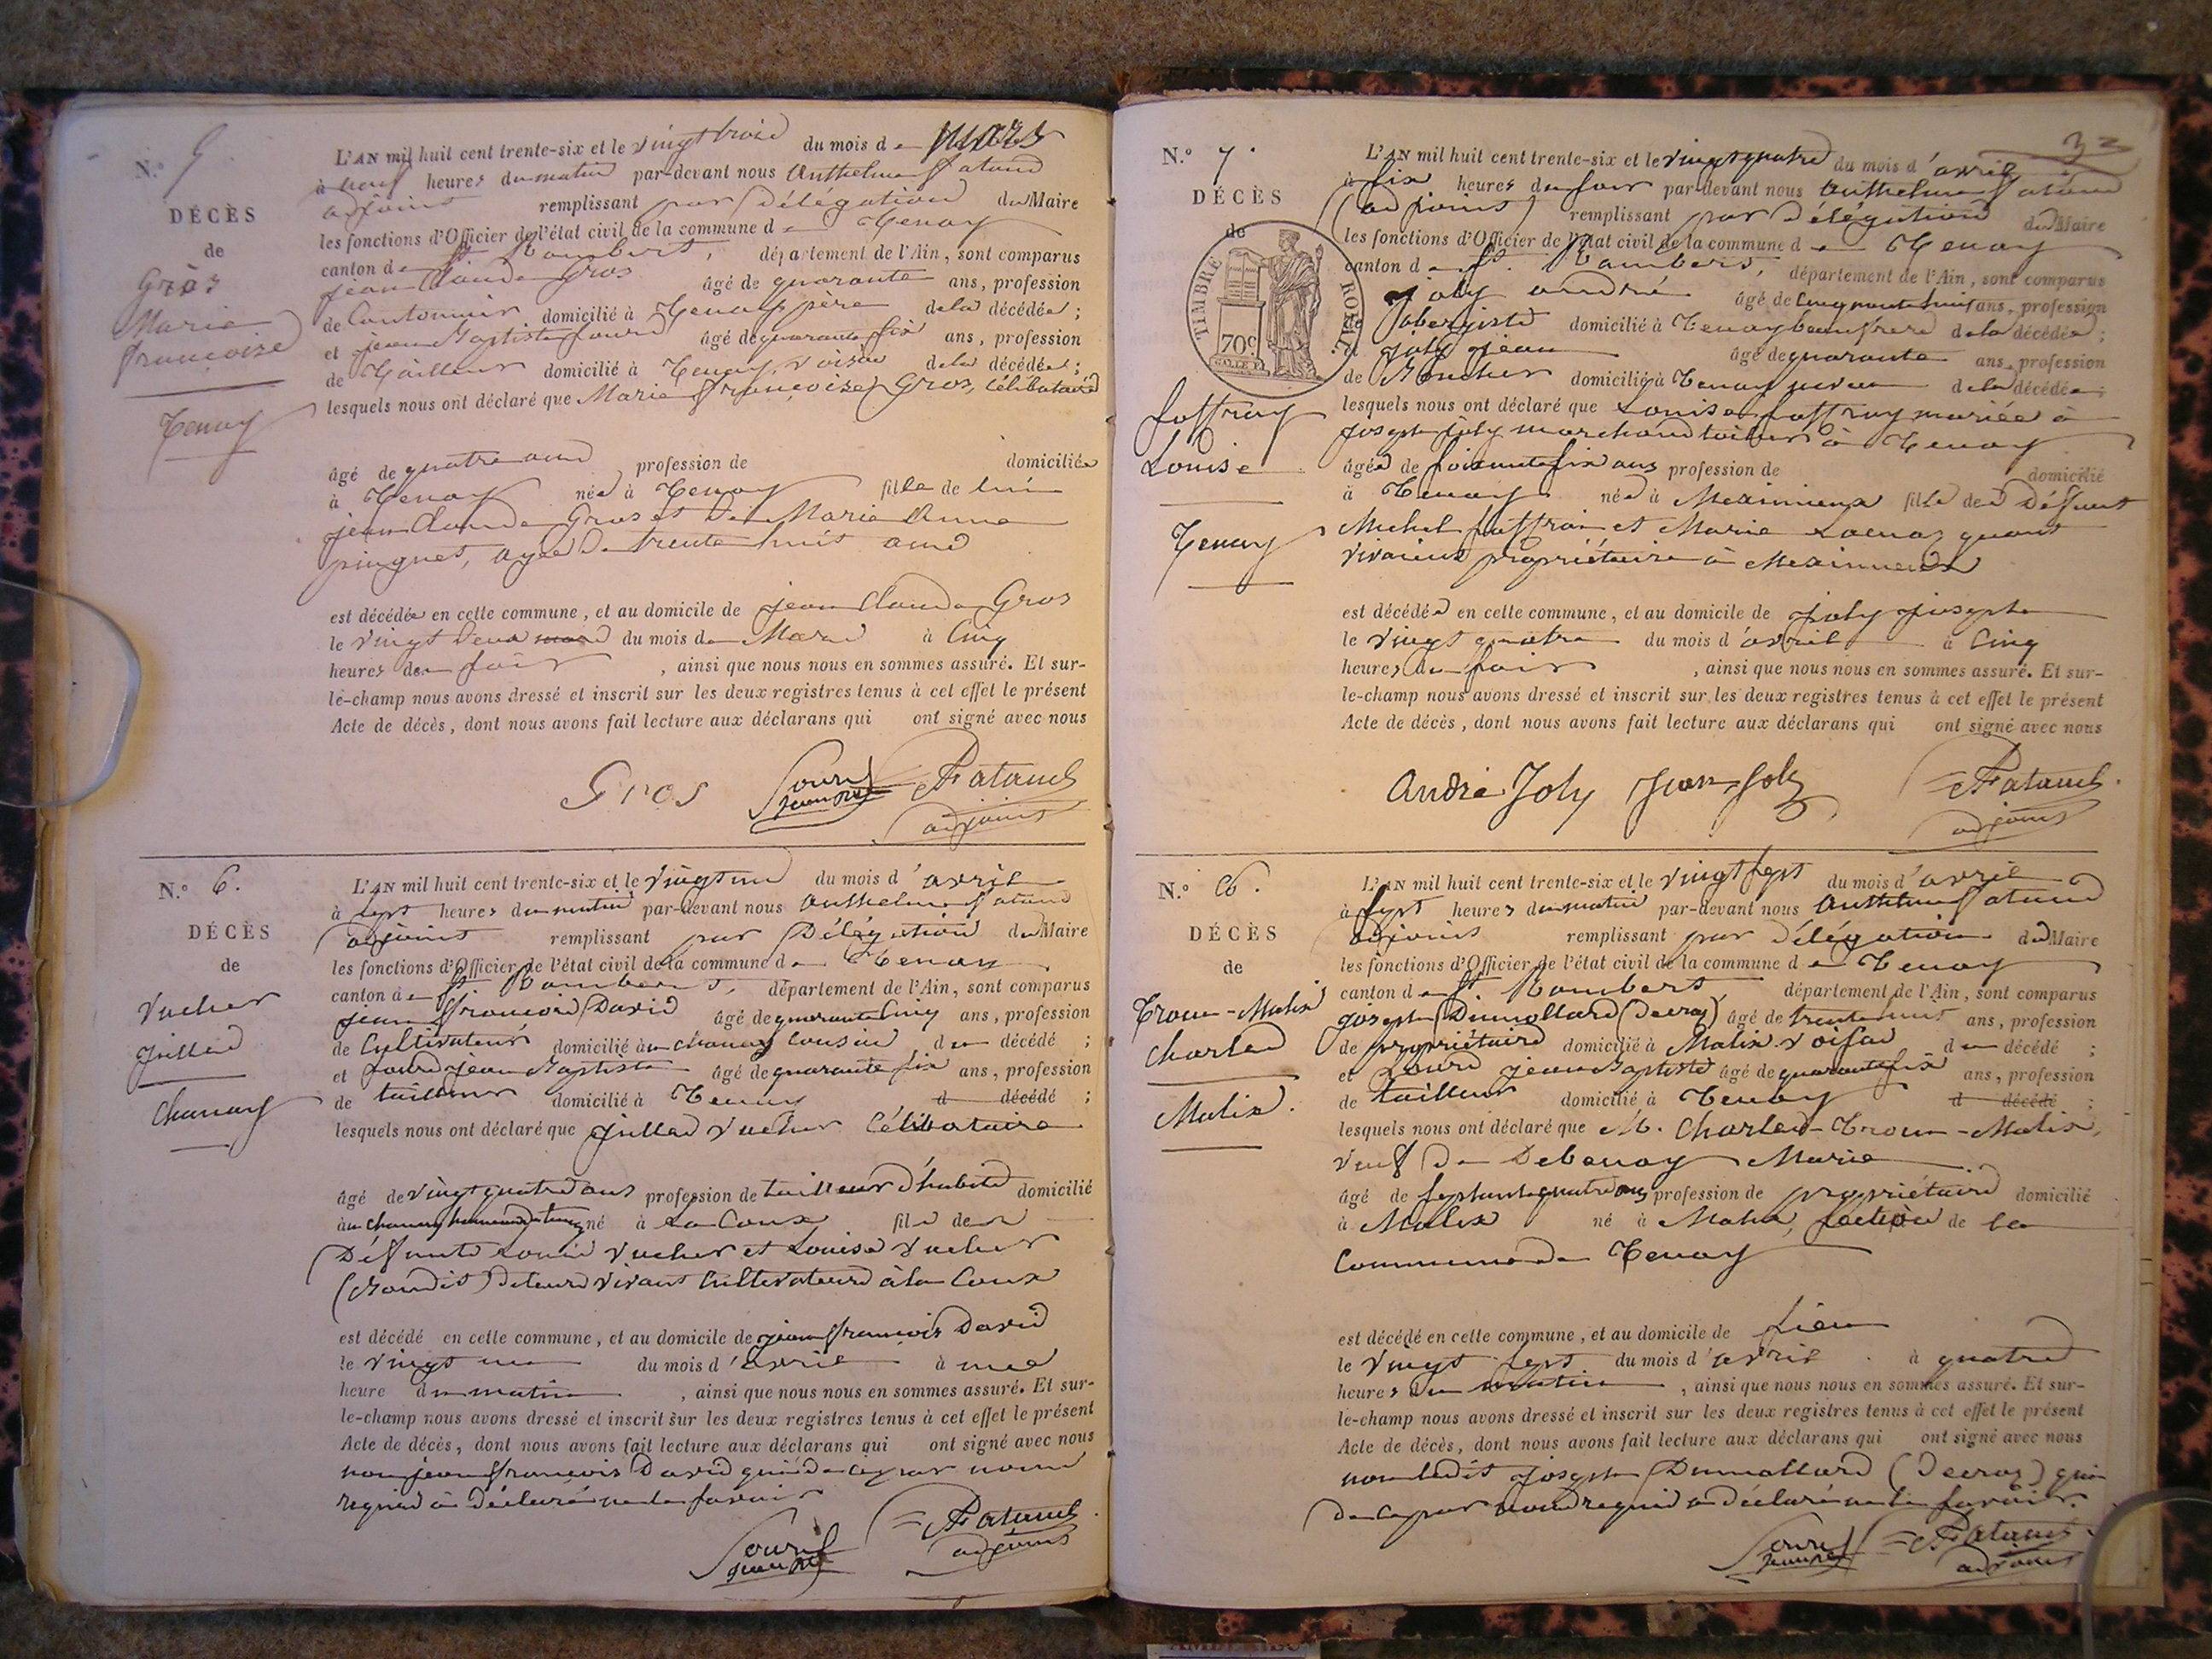 N.° 5
DÉCÈS
de
Gros
Marie
françoise
Tenay
L'AN mil huit cent trente-six et le vingt trois du mois de mars
à neuf heures du matin par-devant nous Anthelme Pataud
adjoint remplissant par Délégation du Maire
les fonctions d'Officier de l'état civil de la commune de Tenay
canton de St Rambert, département de l'Ain, sont comparus
jean Claude Gros âgé de quarante ans, profession
de Cantonnier domicilié à Tenay père de la décédée ;
et jean Baptiste fouré âgé de quarante six ans, profession
de Tailleur domicilié à Tenay, voisin de la décédée ;
lesquels nous ont déclaré que Marie françoise Gros, Célibataire
âgé de quatre ans profession de domiciliée
à Tenay née à Tenay fille de lui
jean Claude Gros et de Marie Anne
pinguet, agée de trente huit ans
est décédée en cette commune, et au domicile de jean Claude Gros
le vingt deux du mois de Mars à Cinq
heures du soir , ainsi que nous nous en sommes assuré. Et sur-
le-champ nous avons dressé et inscrit sur les deux registres tenus à cet effet le présent
Acte de décès, dont nous avons fait lecture aux déclarans qui ont signé avec nous
Gros Pataud
adjoint
N.° 6.
DÉCÈS
de
Vucher
Jullien
Chanay
L'AN mil huit cent trente-six et le vingt un du mois d'avril
à sept heures du matin par-devant nous Anthelme Pataud
adjoint remplissant par Délégation du Maire
les fonctions d'Officier de l'état civil de la commune de Tenay
canton de St Rambert, département de l'Ain, sont comparus
jean françois David âgé de quarante Cinq ans, profession
de Cultivateur domicilié à Chanay Cousin du décédé ;
et jean Baptiste âgé de quarante six ans, profession
de tailleur domicilié à Tenay d décédé ;
lesquels nous ont déclaré que Vucher Célibataire
âgé de vingt quatre ans profession de tailleur d'habits domicilié
au Chanay né à La Coux fils de
Défunts Louis Vucher et Louise Vucher
de leur vivant Cultivateurs à la Coux
est décédé en cette commune, et au domicile de jean françois David
le vingt un du mois d'avril à une
heure du matin , ainsi que nous nous en sommes assuré. Et sur-
le-champ nous avons dressé et inscrit sur les deux registres tenus à cet effet le présent
Acte de décès, dont nous avons fait lecture aux déclarans qui ont signé avec nous
non jean françois David qui de ce par nous
requis a déclaré ne le savoir
Pataud
adjoint
32
N.° 7.
DÉCÈS
de
TIMBRE ROYAL.
70c
Joffray
Louise
Tenay
L'AN mil huit cent trente-six et le vingt quatre du mois d'avril
à six heures du soir par-devant nous Anthelme Pataud
adjoint remplissant par Délégation du Maire
les fonctions d'Officier de l'état civil de la commune de Tenay
canton de St. Rambert, département de l'Ain, sont comparus
Joly andré âgé de Cinquante huit ans, profession
de Obergiste domicilié à Tenay beaufrere de la décédée ;
et Joly jean âgé de quarante ans, profession
de Boucher domicilié à Tenay neveu de la décédée ;
lesquels nous ont déclaré que Louise Joffray mariée à
joseph joly marchand toilier à Tenay
âgée de soixante six ans profession de domicilié
à Tenay née à Meximieux fille de Défunt
Michel Joffrai et Marie quant
vivaient propriétaire à Meximieux
est décédée en cette commune, et au domicile de joly joseph
le vingt quatre du mois d'avril à Cinq
heures du soir , ainsi que nous nous en sommes assuré. Et sur-
le-champ nous avons dressé et inscrit sur les deux registres tenus à cet effet le présent
Acte de décès, dont nous avons fait lecture aux déclarans qui ont signé avec nous
André Joly Jean Joly Pataud
adjoint
N.° 8.
DÉCÈS
de
Charles
Malix.
L'AN mil huit cent trente-six et le vingt sept du mois d'avril
à sept heures du matin par-devant nous Anthelme Pataud
adjoint remplissant par délégation du Maire
les fonctions d'Officier de l'état civil de la commune de Tenay
canton de St Rambert, département de l'Ain, sont comparus
joseph Dumollard âgé de trente huit ans, profession
de propriétaire domicilié à Malix voisin du décédé ;
et jean Baptiste âgé de quarante six ans, profession
de tailleur domicilié à Tenay d décédé ;
lesquels nous ont déclaré que M. Charles Malix,
veuf de Debenay Marie
âgé de septante quatre ans profession de propriétaire domicilié
à Malix né à Malix, section de la
Commune de Tenay
est décédé en cette commune, et au domicile de sien
le vingt sept du mois d'avril à quatre
heures du matin , ainsi que nous nous en sommes assuré. Et sur-
le-champ nous avons dressé et inscrit sur les deux registres tenus à cet effet le présent
Acte de décès, dont nous avons fait lecture aux déclarans qui ont signé avec nous
non ledit joseph Dumollard qui
de ce par nous requis a déclaré ne le savoir.
Pataud
adjoint